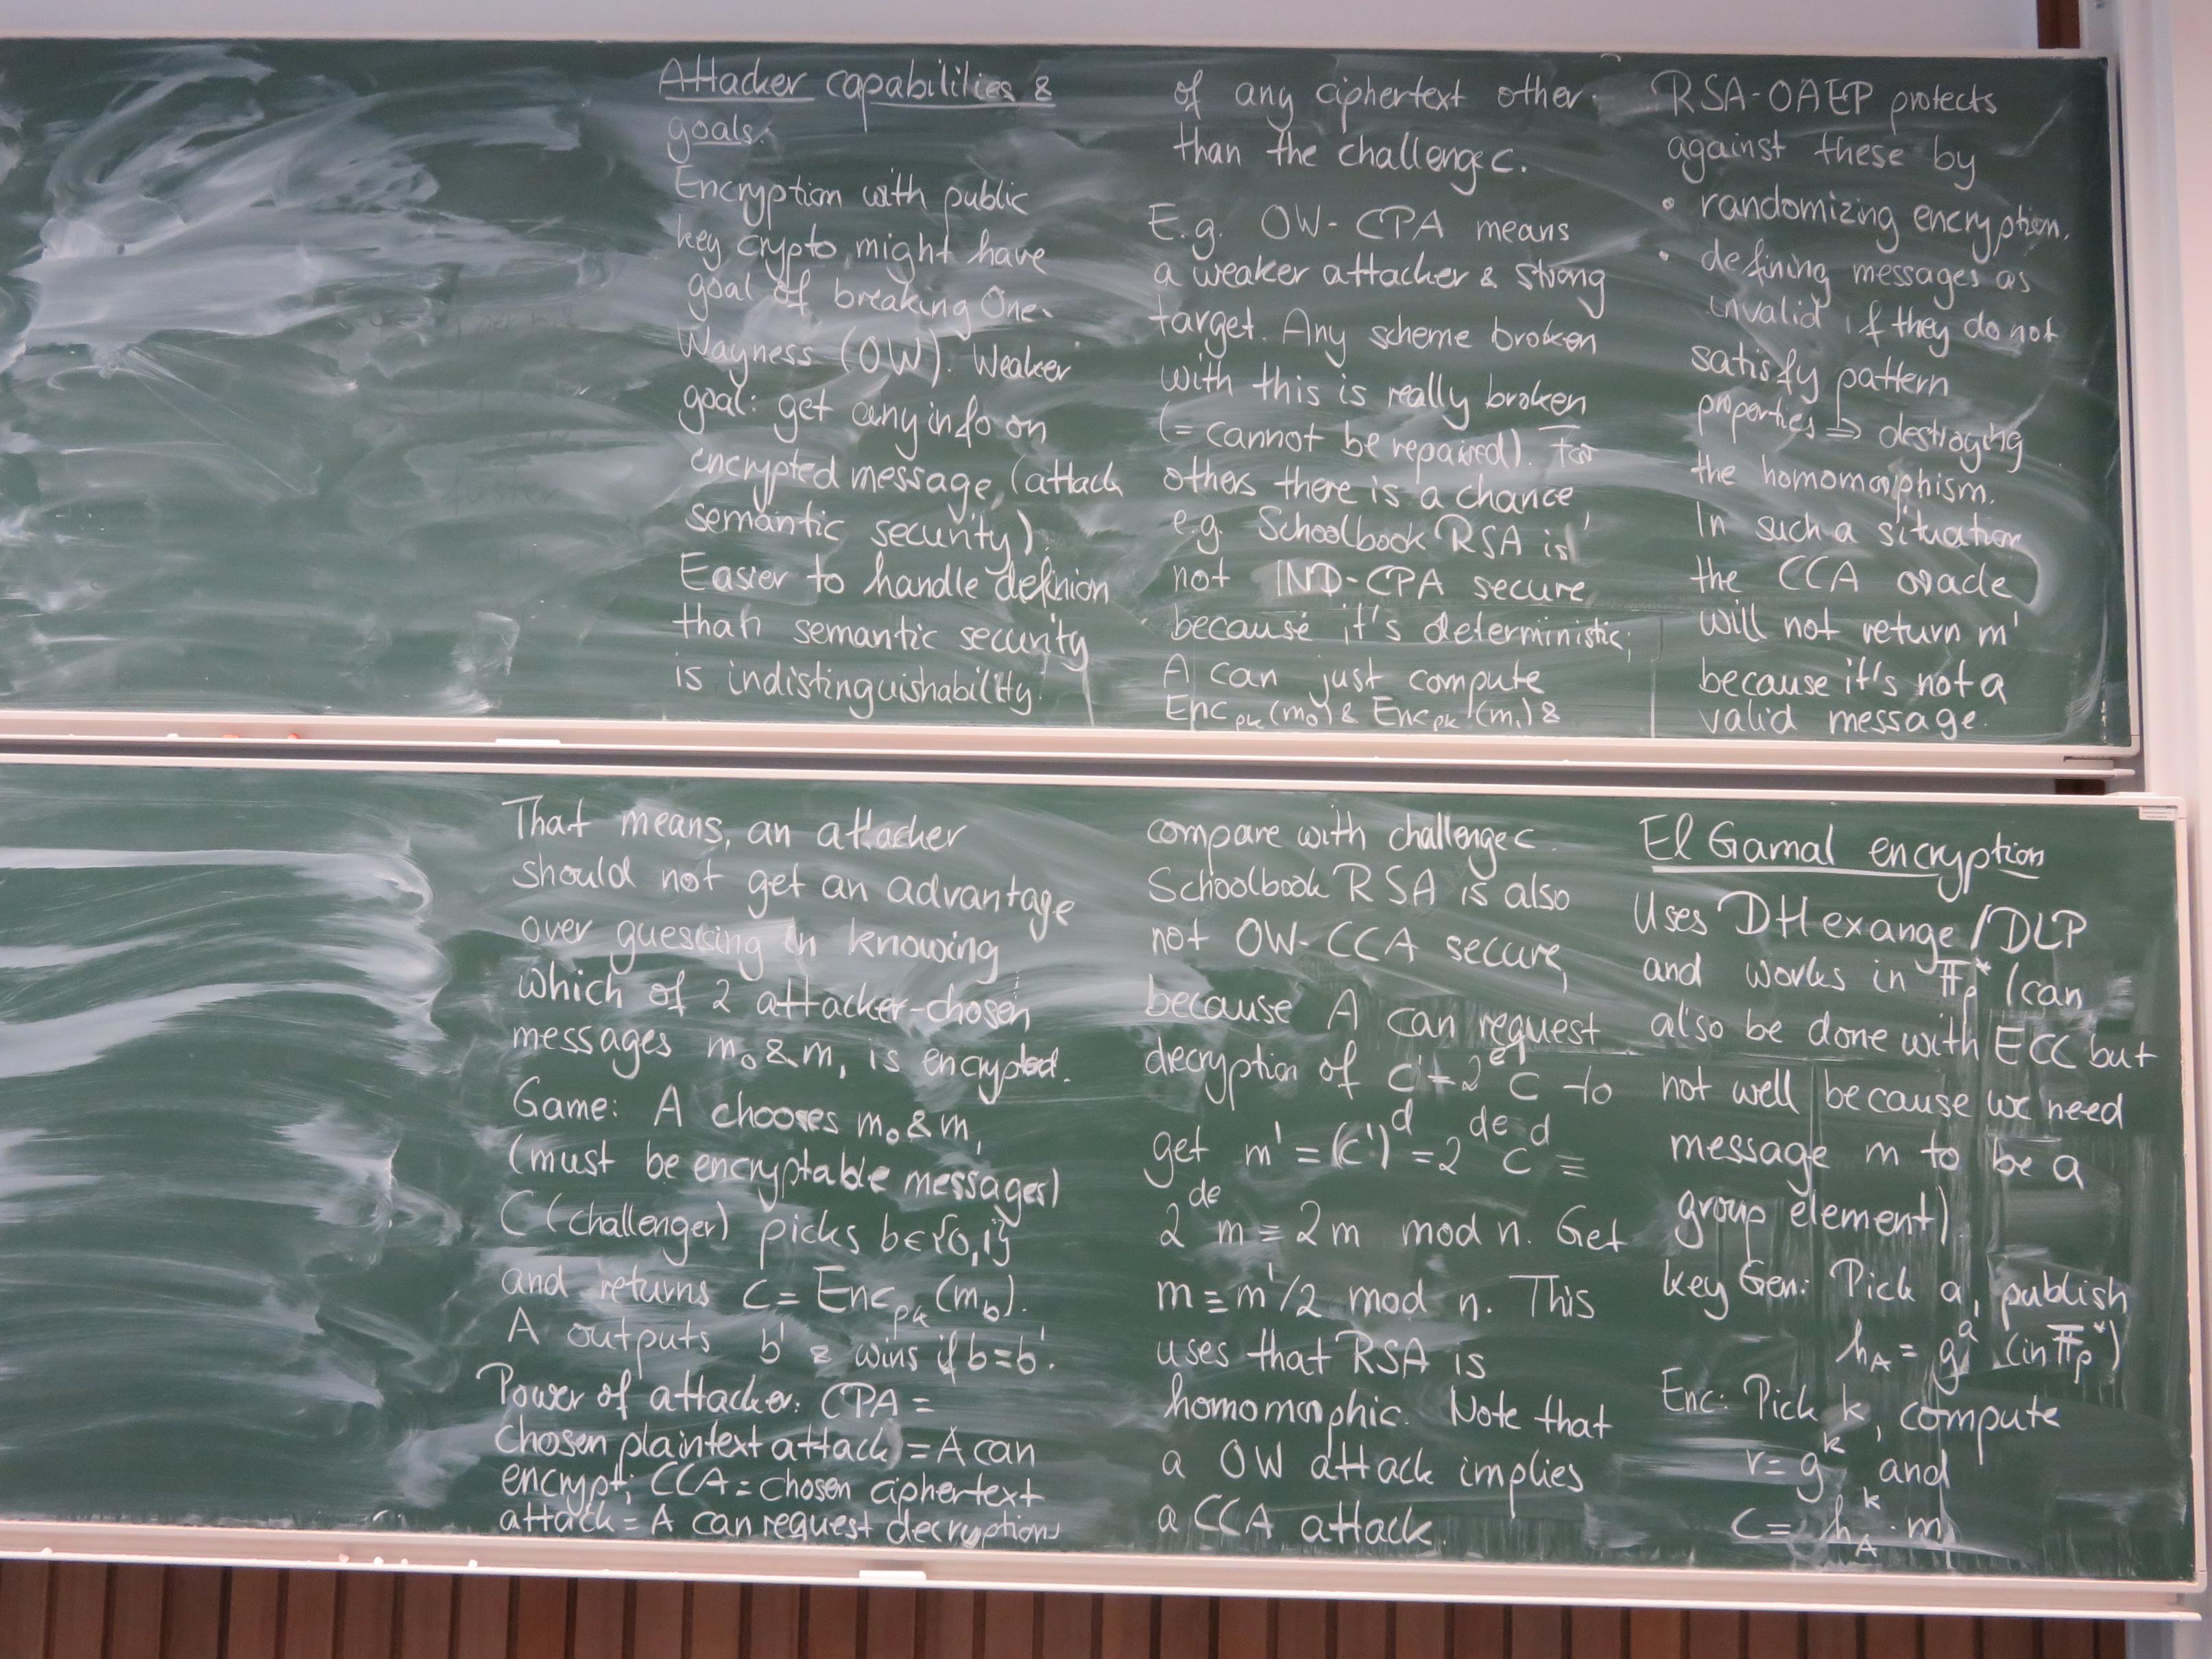 Attacker capabilities &
goals.
Encryption with public
key crypto might have
goal of breaking One-
Wayness (OW). Weaker
goal: get any info on
encrypted message, (attack
semantic security).
Easier to handle definion
than semantic security
is indistinguishability.
That means, an attacker
should not get an advantage
over guessing in knowing
which of 2 attacker-chosen
messages m₀ & m₁ is encrypted.
Game: A chooses m₀ & m₁
(must be encryptable messages)
C (challenger) picks b∈{0,1}
and returns c = Enc_pk(m_b).
A outputs b' & wins if b=b'.
Power of attacker: CPA =
chosen plaintext attack = A can
encrypt; CCA = chosen ciphertext
attack = A can request decryptions
of any ciphertext other
than the challenge c.
E.g. OW-CPA means
a weaker attacker & strong
target. Any scheme broken
with this is really broken
(= cannot be repaired). For
others there is a chance
e.g. Schoolbook RSA is
not IND-CPA secure
because it's deterministic;
A can just compute
Enc_pk(m₀) & Enc_pk(m₁) &
compare with challenge c.
Schoolbook RSA is also
not OW-CCA secure,
because A can request
decryption of c' = 2^e c to
get m' = (c')^d = 2^de c^d ≡
2^de m ≡ 2m mod n. Get
m ≡ m'/2 mod n. This
uses that RSA is
homomorphic. Note that
a OW attack implies
a CCA attack.
RSA-OAEP protects
against these by
• randomizing encryption.
• defining messages as
invalid if they do not
satisfy pattern
properties ⇒ destroying
the homomorphism.
In such a situation
the CCA oracle
will not return m'
because it's not a
valid message.
El Gamal encryption
Uses DH exange / DLP
and works in 𝔽_p^* (can
also be done with ECC but
not well because we need
message m to be a
group element).
key Gen: Pick a, publish
h_A = g^a (in 𝔽_p^*)
Enc: Pick k, compute
r = g^k and
c = h_A^k · m